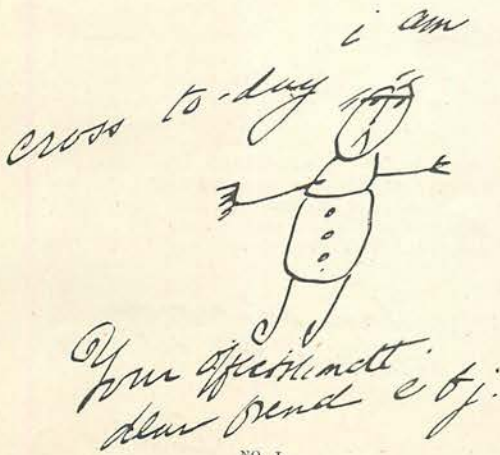 i am
cross to-day
Your affectionatt
dear frend e b j.
NO. I